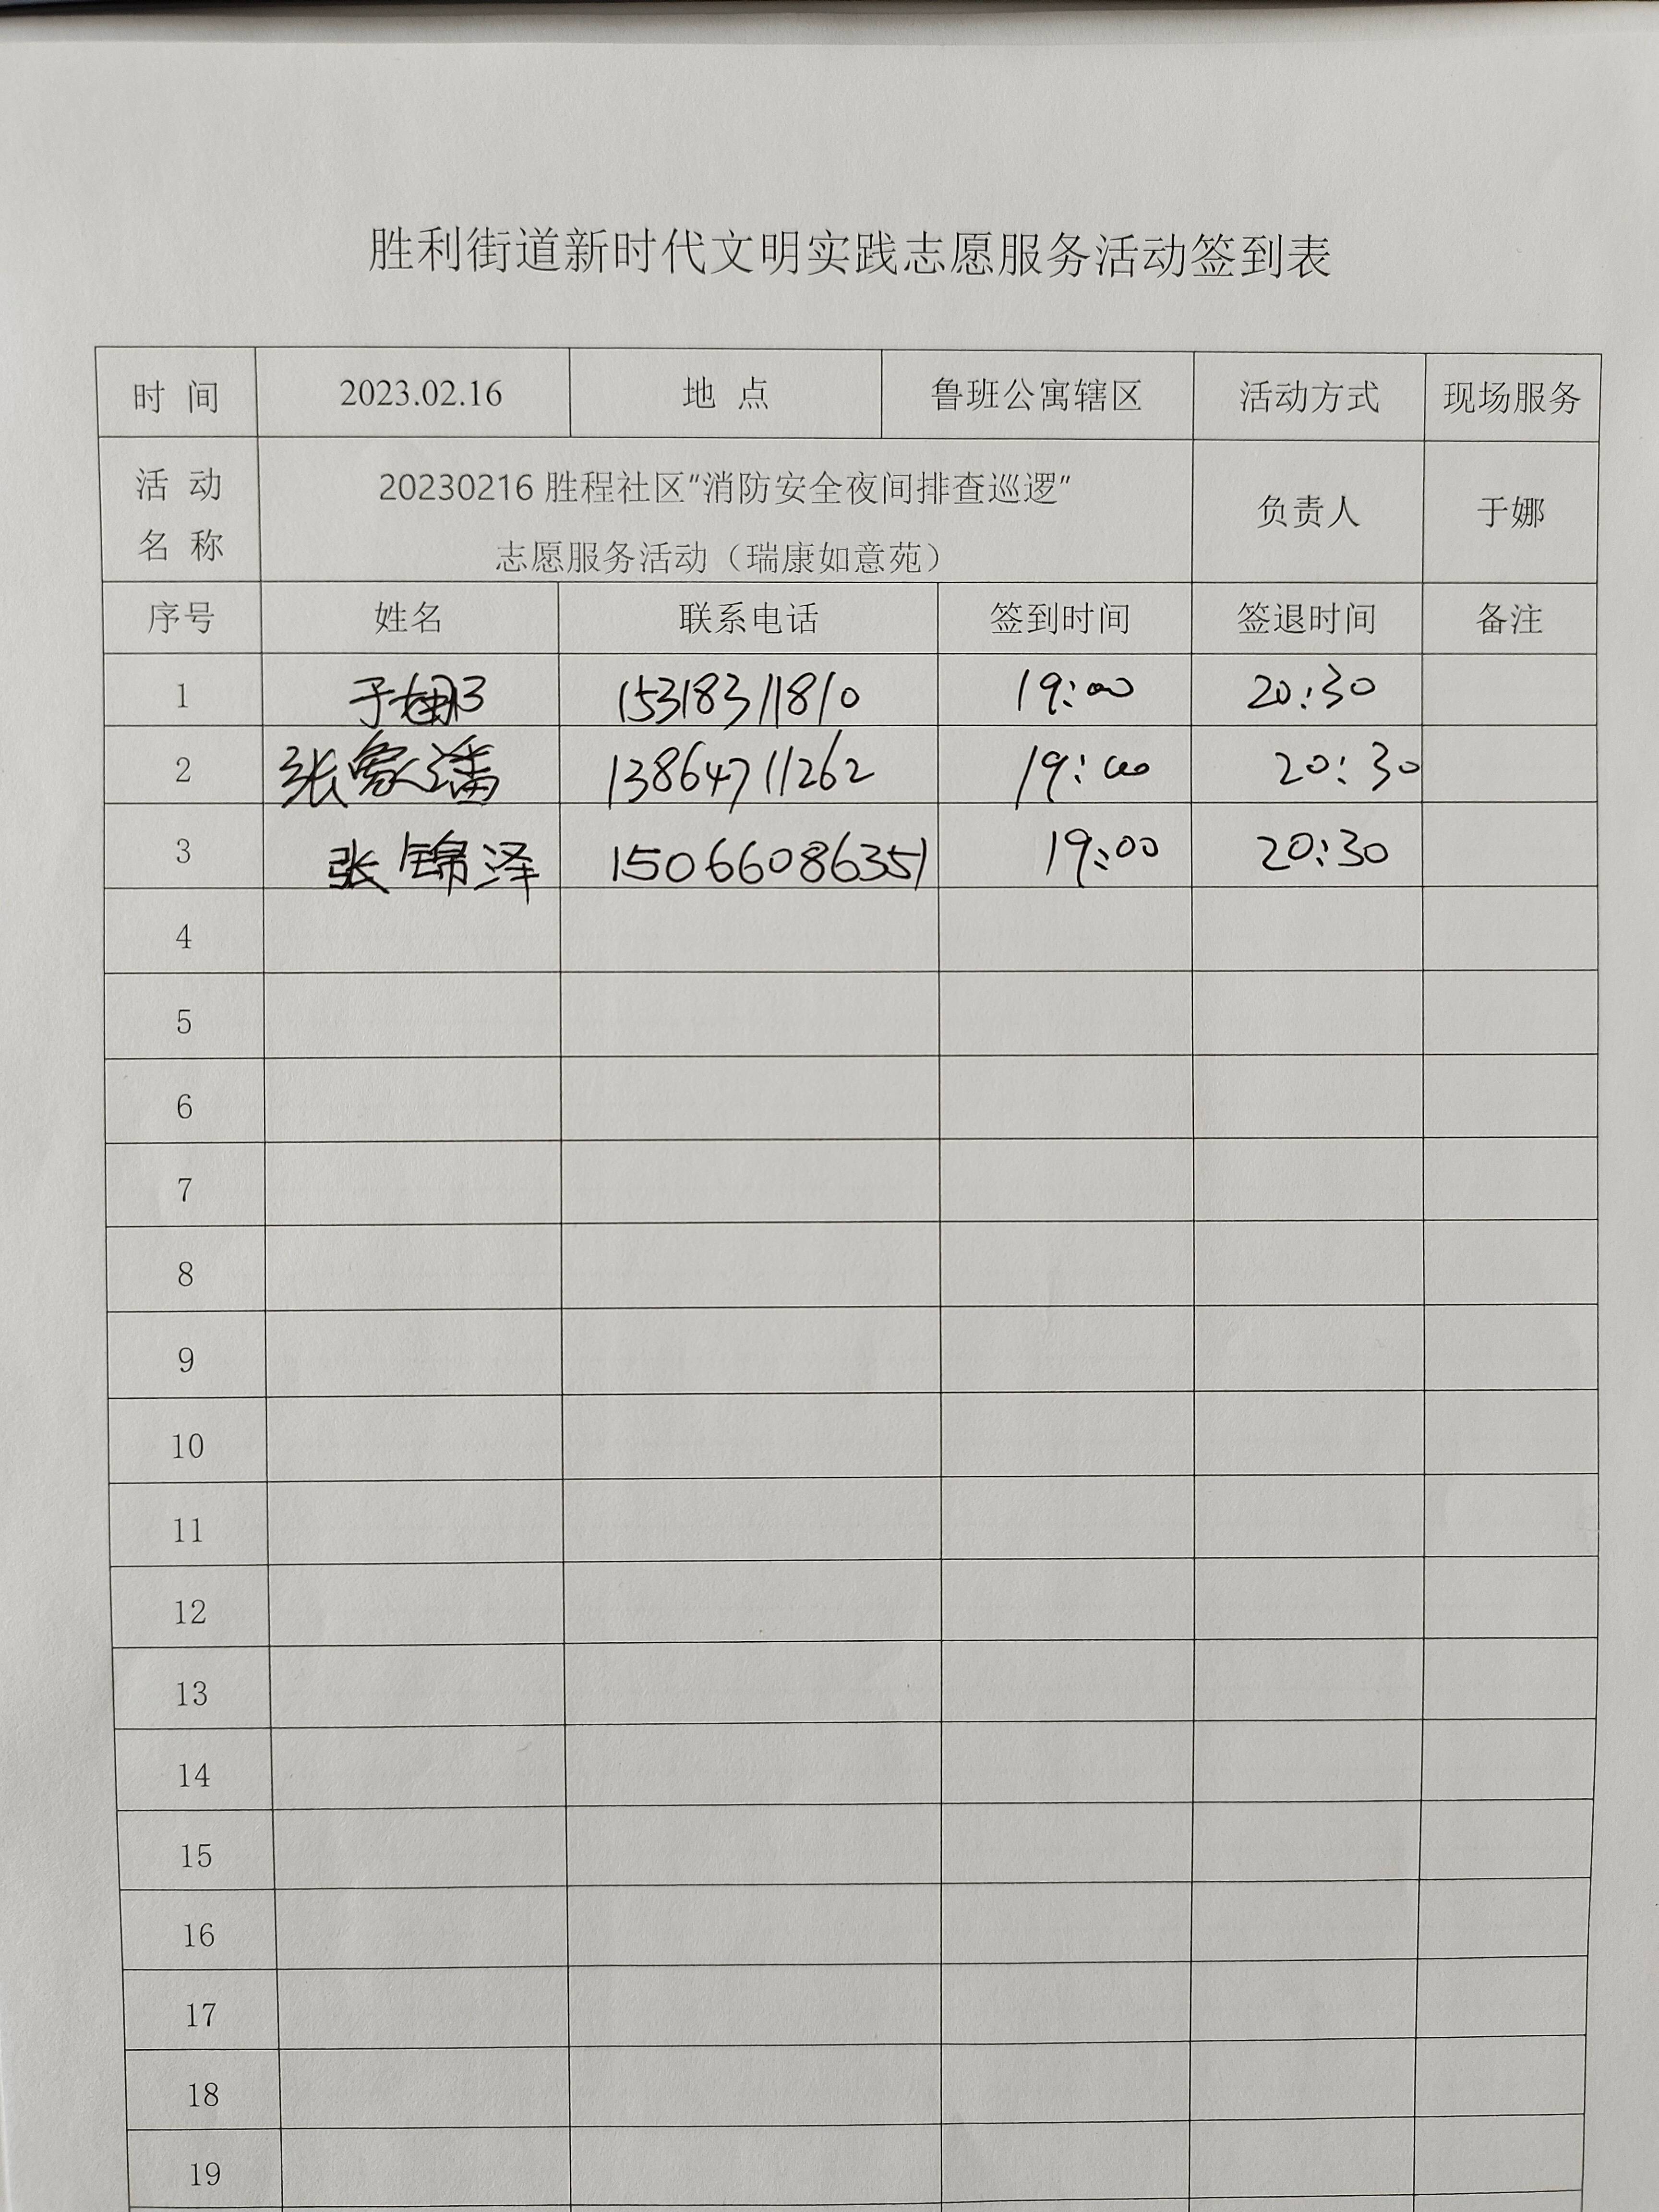 胜利街道新时代文明实践志愿服务活动签到表
时 间 2023.02.16 地 点 鲁班公寓辖区 活动方式 现场服务
活 动 名 称 20230216 胜程社区“消防安全夜间排查巡逻” 负责人 于娜
志愿服务活动（瑞康如意苑）
序号 姓名 联系电话 签到时间 签退时间 备注
1 于娜 15318311810 19:00 20:30
2 张家潘 13864711262 19:00 20:30
3 张锦泽 15066086351 19:00 20:30
4
5
6
7
8
9
10
11
12
13
14
15
16
17
18
19